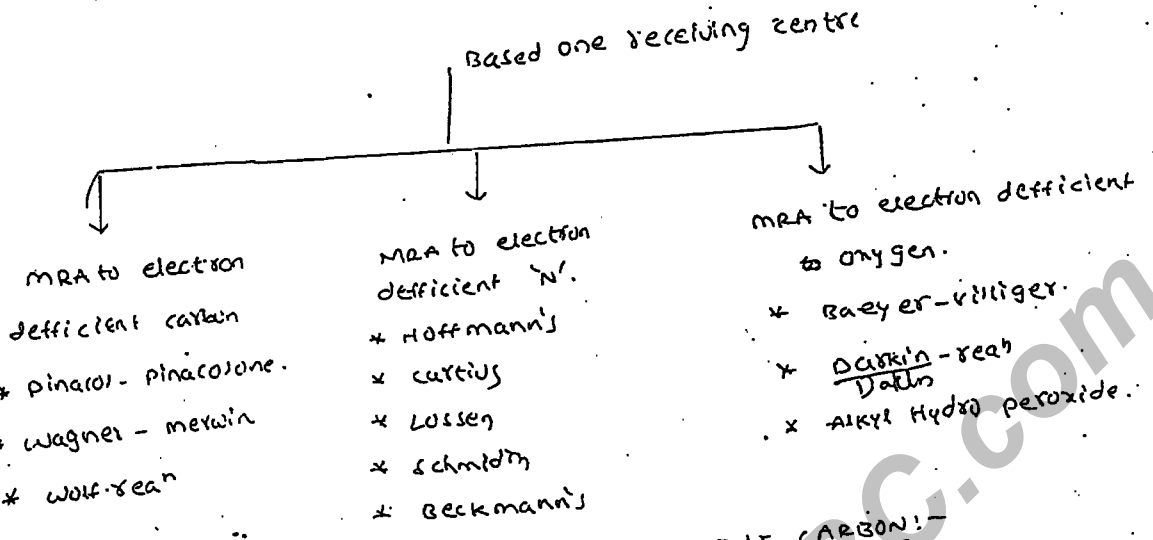 Based one receiving centre
MRA to electron
defficient carbon
* pinacol - pinacolone.
* Wagner - merwin
* Wolf. reaⁿ
MRA to electron
defficient 'N'.
* Hoffmann's
* Curtius
* Lossen
* Schmidth
* Beckmann's
MRA to electron defficient
to oxygen.
* Baeyer - villiger.
* Darkin - reaⁿ
* Alkyl Hydro peroxide.
CARBON! -
C.com